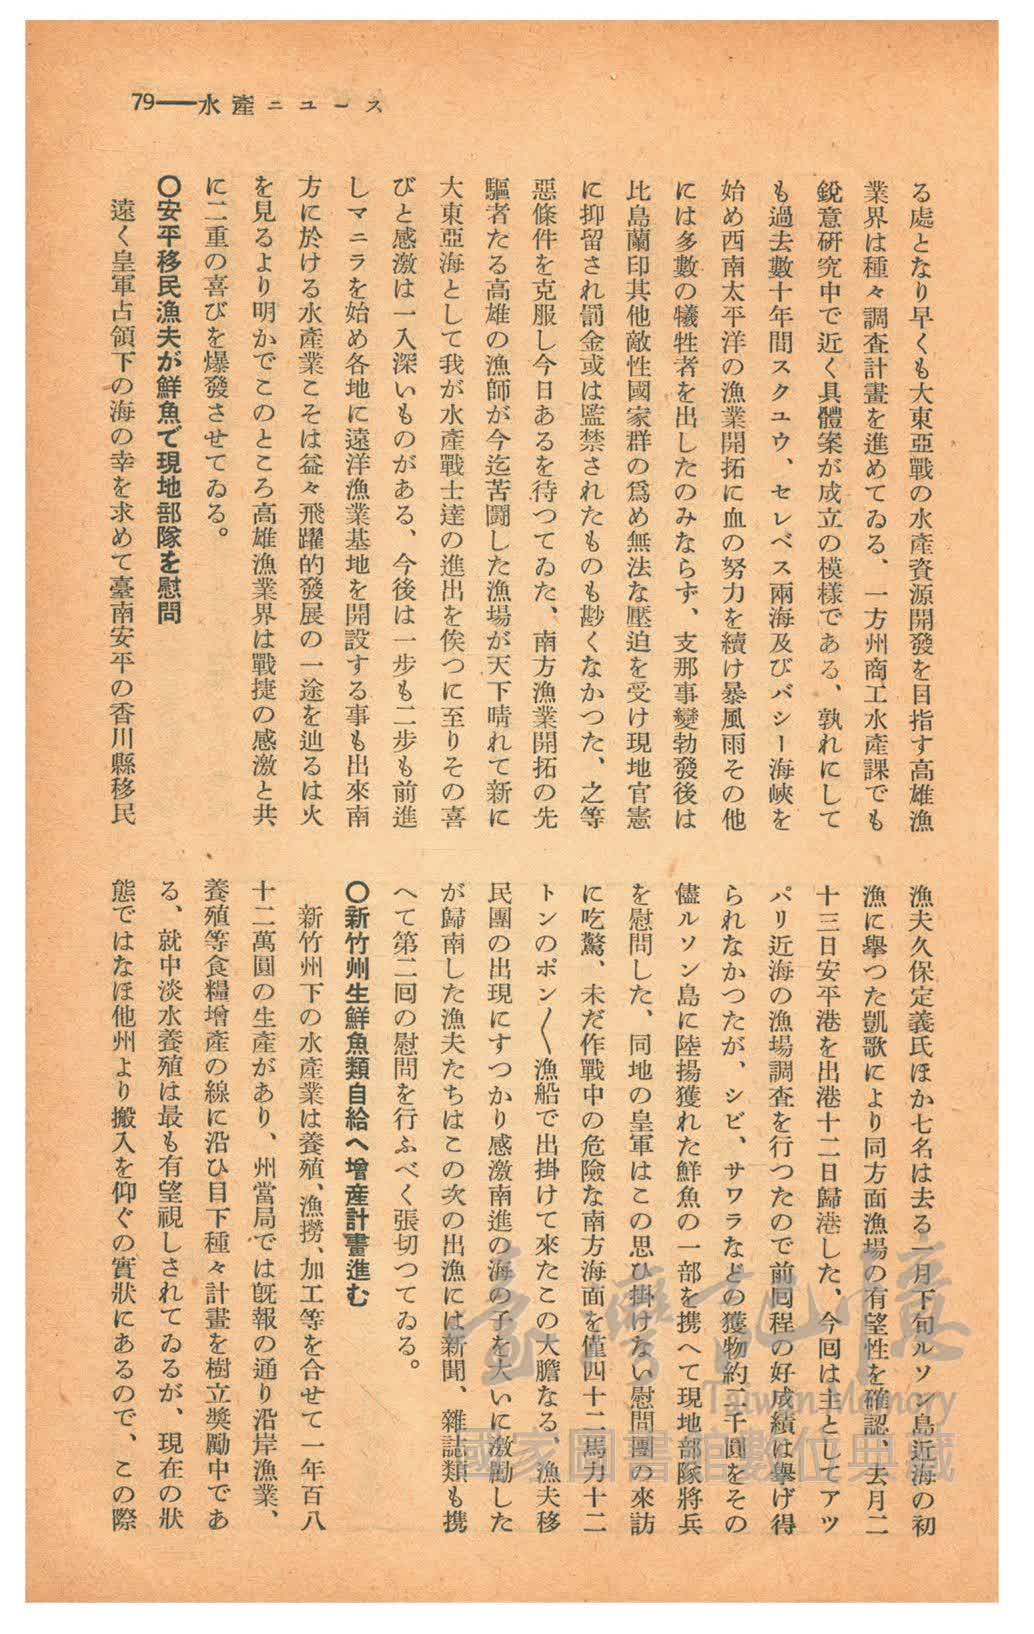 79——水產ニュース
る處となり早くも大東亞戰の水產資源開發を目指す高雄漁
業界は種々調査計畫を進めてゐる、一方州商工水產課でも
銳意研究中で近く具體案が成立の模樣である、孰れにして
も過去數十年間スクユウ、セレベス兩海及びバシー海峽を
始め西南太平洋の漁業開拓に血の努力を續け暴風雨その他
には多數の犧牲者を出したのみならず、支那事變勃發後は
比島蘭印其他敵性國家群の爲め無法な壓迫を受け現地官憲
に抑留され罰金或は監禁されたものも尠くなかつた、之等
惡條件を克服し今日あるを待つてゐた、南方漁業開拓の先
驅者たる高雄の漁師が今迄苦闘した漁場が天下晴れて新に
大東亞海として我が水產戰士達の進出を俟つに至りその喜
びと感激は一入深いものがある、今後は一步も二步も前進
しマニラを始め各地に遠洋漁業基地を開設する事も出來南
方に於ける水產業こそは益々飛躍的發展の一途を辿るは火
を見るより明かでこのところ高雄漁業界は戰捷の感激と共
に二重の喜びを爆發させてゐる。
〇安平移民漁夫が鮮魚で現地部隊を慰問
遠く皇軍占領下の海の幸を求めて臺南安平の香川縣移民
漁夫久保定義氏ほか七名は去る一月下旬ルソン島近海の初
漁に擧つた凱歌により同方面漁場の有望性を確認、去月二
十三日安平港を出港十二日歸港した、今囘は主としてアツ
パリ近海の漁場調査を行つたので前囘程の好成績は擧げ得
られなかつたが、シビ、サワラなどの獲物約二千圓をその
儘ルソン島に陸揚獲れた鮮魚の一部を携へて現地部隊將兵
を慰問した、同地の皇軍はこの思ひ掛けない慰問團の來訪
に吃驚、未だ作戰中の危險な南方海面を僅四十二馬力十二
トンのポン〱漁船で出掛けて來たこの大膽なる、漁夫移
民團の出現にすつかり感激南進の海の子を大いに激勵した
が歸南した漁夫たちはこの次の出漁には新聞、雜誌類も携
へて第二囘の慰問を行ふべく張切つてゐる。
〇新竹州生鮮魚類自給へ增產計畫進む
新竹州下の水產業は養殖、漁撈、加工等を合せて一年百八
十二萬圓の生產があり、州當局では既報の通り沿岸漁業、
養殖等食糧增產の線に沿ひ目下種々計畫を樹立奬勵中であ
る、就中淡水養殖は最も有望視しされてゐるが、現在の狀
態ではなほ他州より搬入を仰ぐの實狀にあるので、この際
臺灣記憶
Taiwan Memory
國家圖書館數位典藏